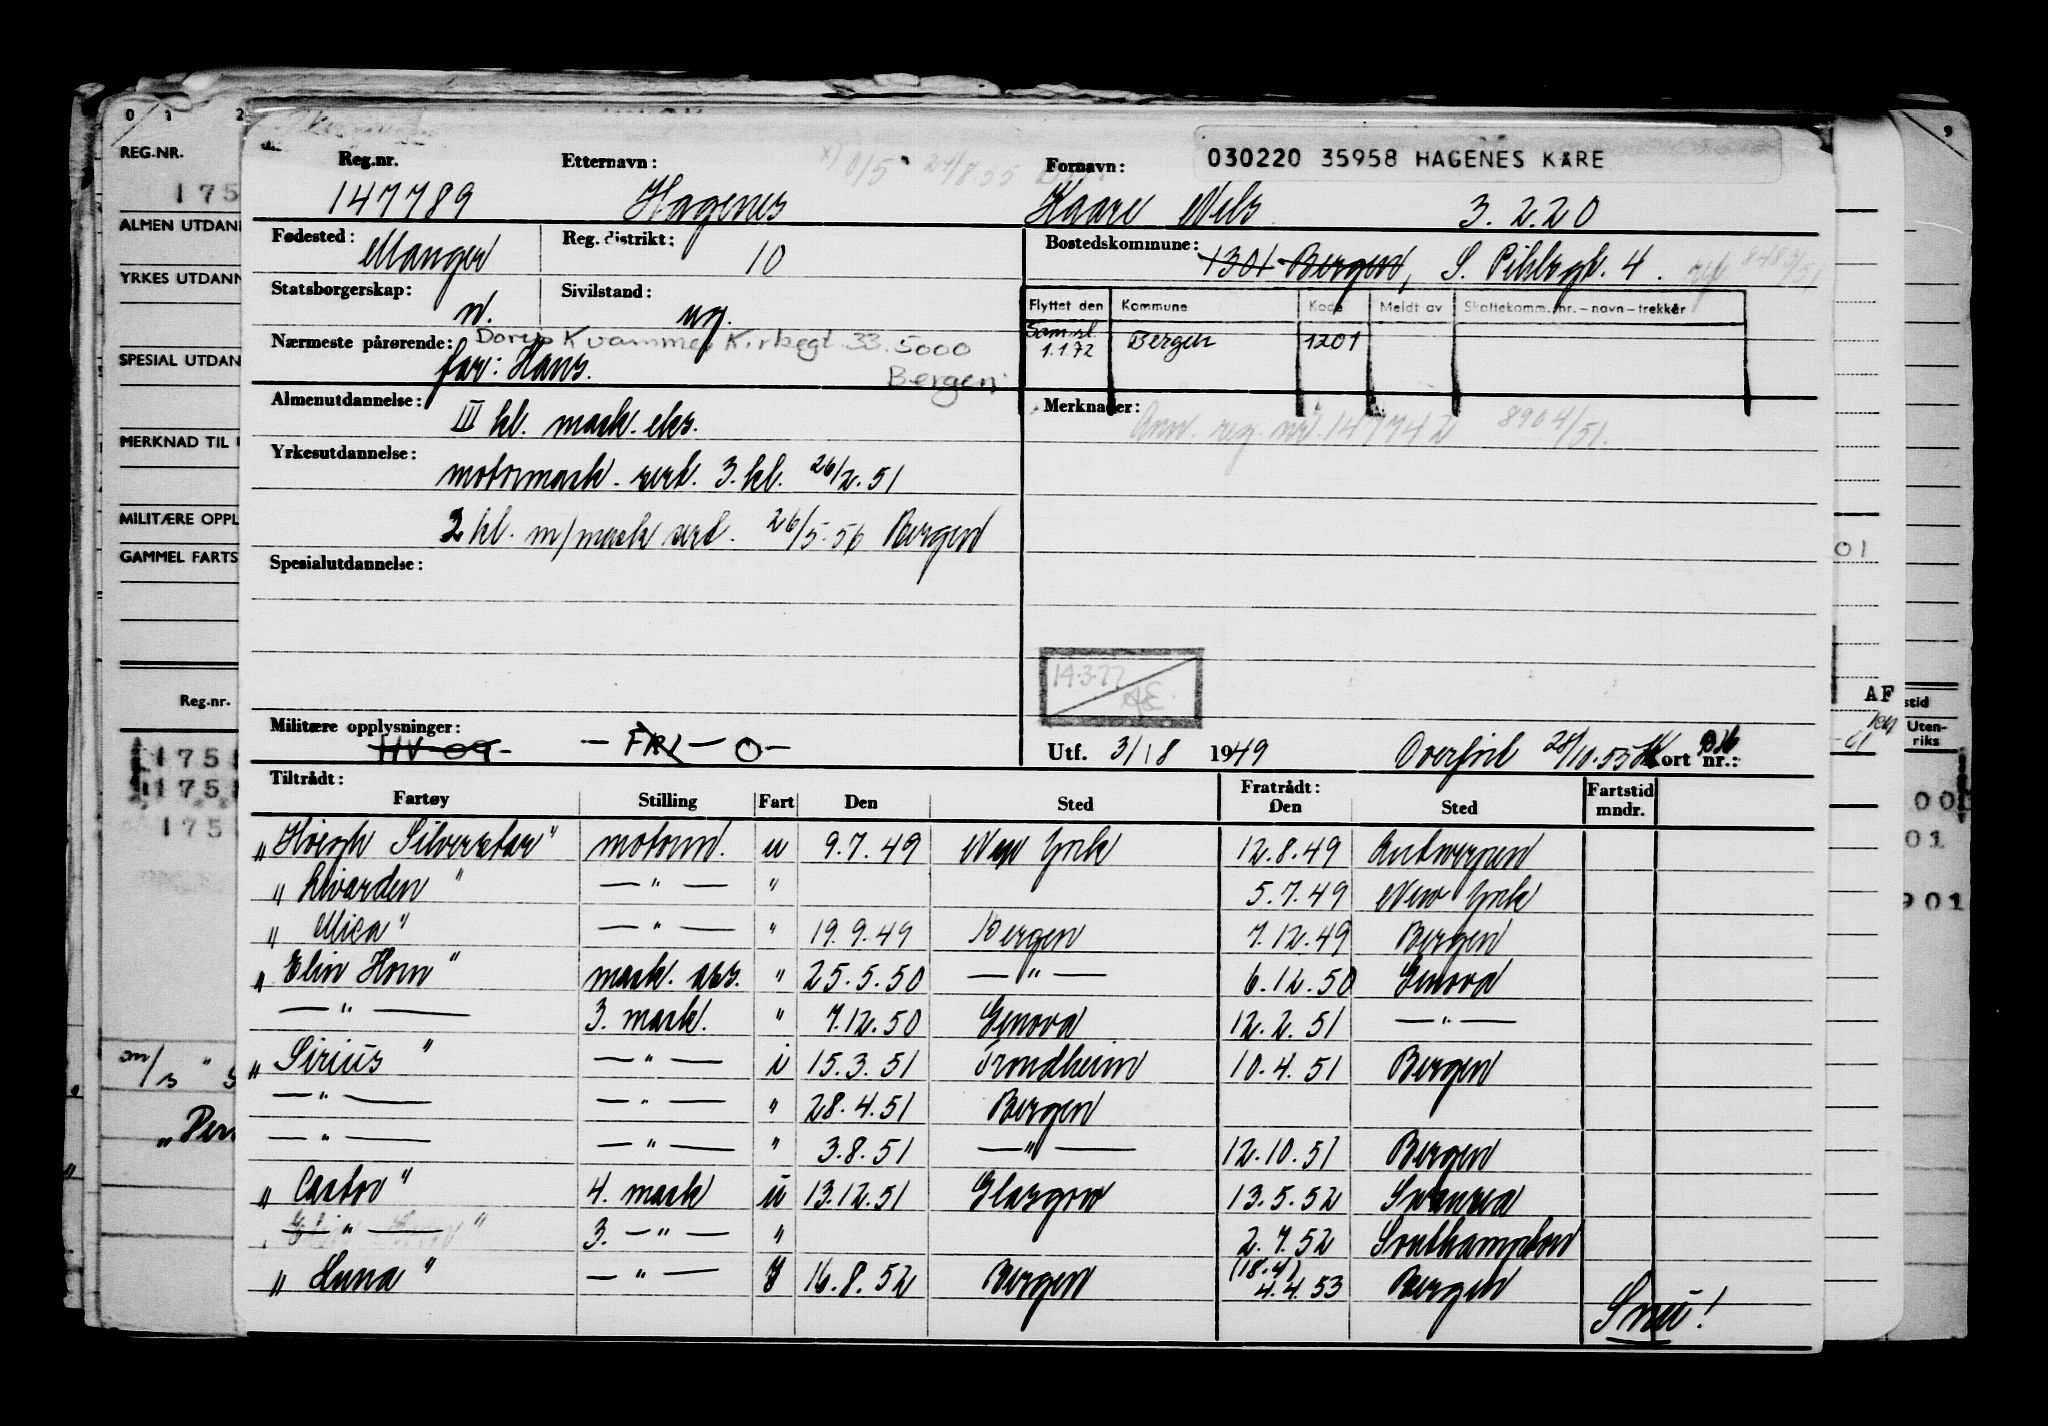 0 1 2
9
REG.NR.
175
ALMEN UTDANN
YRKES UTDANN
SPESIAL UTDAN
MERKNAD TIL
MILITÆRE OPPL
GAMMEL FARTS
Reg.nr.
175
175
175
030220 35958 HAGENES KÅRE
Reg.nr. Etternavn: Fornavn:
147789 Hagenes Kaare Nels 3.2.20
Fødested: Manger Reg. distrikt: 10 Bostedskommune: 1301 Bergen, S. Pihlsgt. 4.
Statsborgerskap: n. Sivilstand: ug.
Flyttet den Kommune Kode Meldt av Skattekomm. nr. – navn – trekker
Sam.sl. 1.1.72 Bergen 1201
Nærmeste pårørende: Dorep Kvammer Kirkegt. 33. 5000 Bergen
far: Hans.
Almenutdannelse: III kl. mask. eks.
Merknader: Ann. reg. nr. 147742 8904/51.
Yrkesutdannelse:
motormask. sert. 3. kl. 26/2.51
2 kl. m/mask sert. 26/5-56 Bergen
Spesialutdannelse:
14.3.77
Militære opplysninger: HV-09- – FRL – O –
Utf. 3/8 1949 Overført 28/10.55 Kort nr.:
Tiltrådt: Fratrådt:
Fartøy Stilling Fart Den Sted Den Sted Fartstid mndr.
„Höegh Silverstar" motorm. u 9.7.49 New York 12.8.49 Antwerpen
„Livarden" — " — " 5.7.49 New York
„Mica" — " — " 19.9.49 Bergen 7.12.49 Bergen
„Elin Horn" mask. ass. " 25.5.50 — " — 6.12.50 Genova
— " — 3. mask. " 7.12.50 Genova 12.2.51 — " —
„Sirius" — " — i 15.3.51 Trondheim 10.4.51 Bergen
— " — — " — " 28.4.51 Bergen
— " — — " — " 3.8.51 — " — 12.10.51 Bergen
„Castor" 4. mask u 13.12.51 Glasgow 13.5.52 Swansea
— " — 3. — " — " 2.7.52 Southampton
„Luna" — " — I 16.8.52 Bergen (18.4) 4.4.53 Bergen
Snu!
AF
Uten-
riks